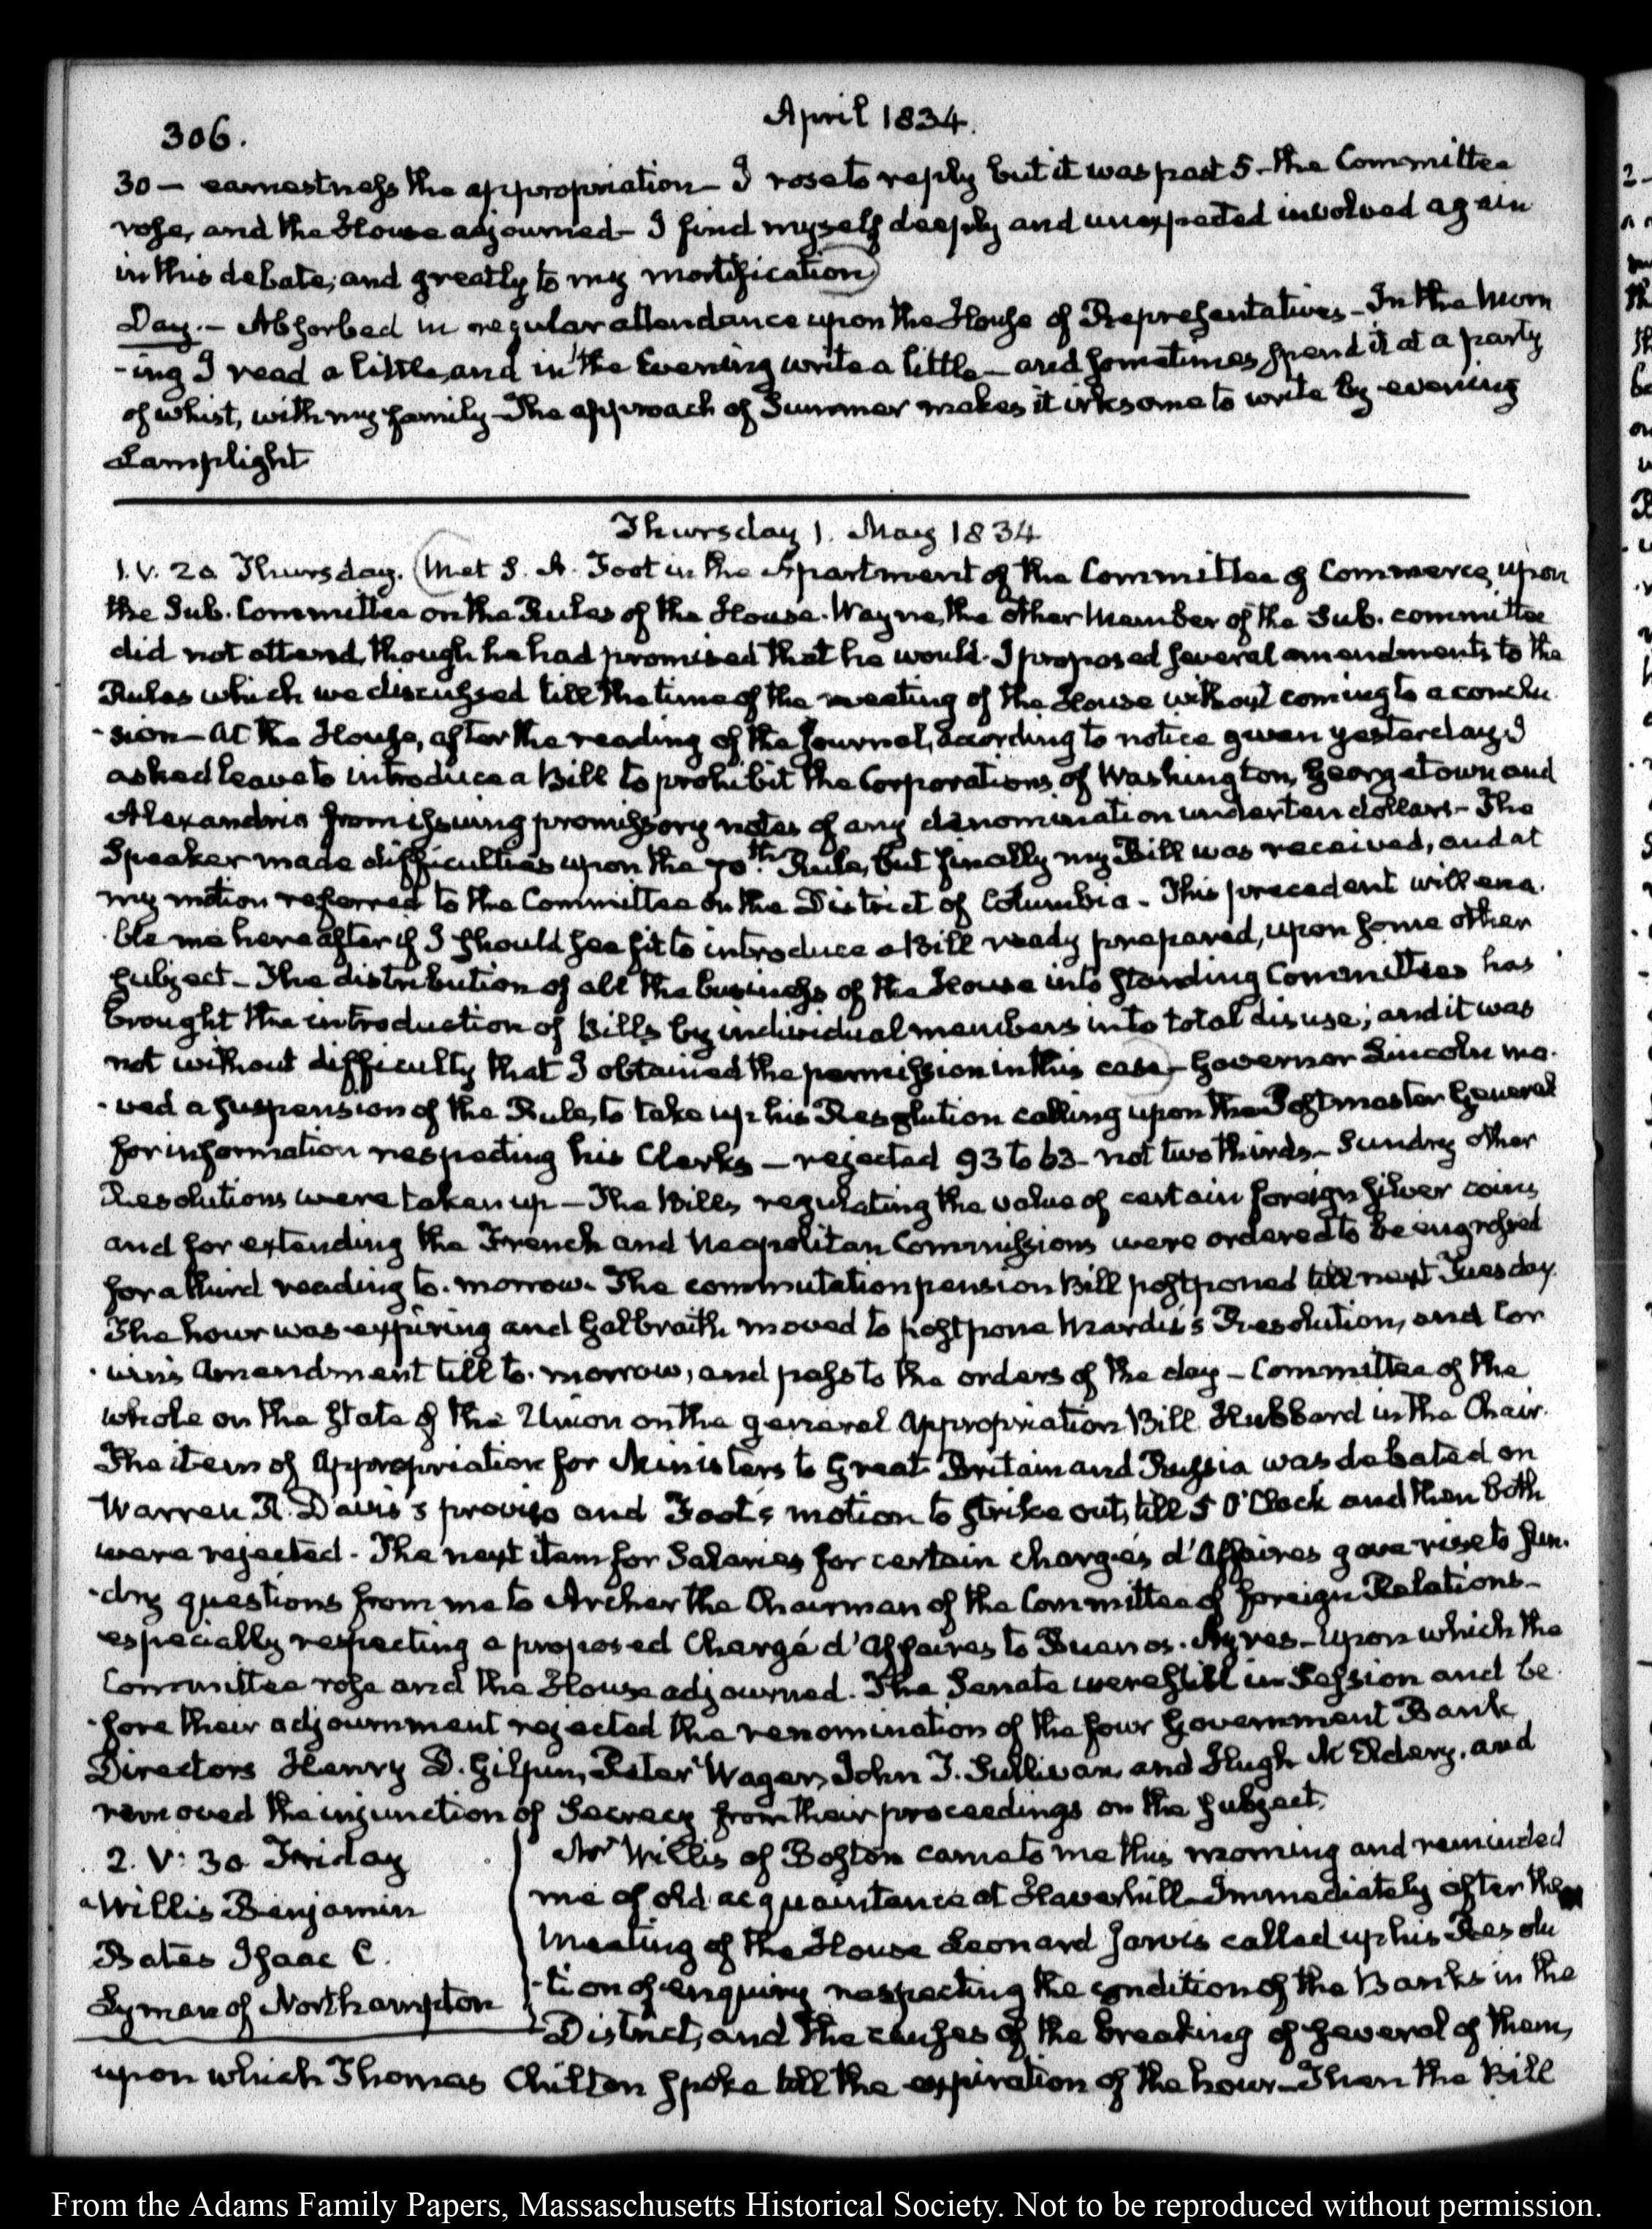 306.
April 1834.
30 — earnestness the appropriation — I rose to reply but it was past 5 - the Committee
rose, and the House adjourned — I find myself deeply and unexpected involved again
in this debate; and greatly to my mortification)
Day. — Absorbed in regular attendance upon the House of Representatives — In the Morn
-ing I read a little, and in the Evening write a little — and sometimes spend it at a party
of whist, with my family — The approach of Summer makes it irksome to write by evening
Lamplight
Thursday 1. May 1834
1. V. 20. Thursday. (Met S. A. Foot in the Apartment of the Committee of Commerce, upon
the Sub. Committee on the Rules of the House. Wayne, the other Member of the Sub. committee
did not attend, though he had promised that he would. I proposed several amendments to the
Rules which we discussed till the time of the meeting of the House without coming to a conclu
-sion — At the House, after the reading of the Journal, according to notice given yesterday, I
asked leave to introduce a Bill to prohibit the Corporations of Washington, Georgetown and
Alexandria from issuing promissory notes of any denomination under ten dollars — The
Speaker made difficulties upon the 70th. Rule, but finally my Bill was received, and at
my motion referred to the Committee on the District of Columbia — This precedent will ena.
ble me hereafter if I should see fit to introduce a Bill ready prepared, upon some other
subject — The distribution of all the business of the House into standing Committees has
brought the introduction of Bills by individual members into total disuse; and it was
not without difficulty that I obtained the permission in this case) — Governor Lincoln mo.
-ved a suspension of the Rule, to take up his Resolution calling upon the Postmaster General
for information respecting his Clerks — rejected 93 to 63 — not two thirds — Sundry other
Resolutions were taken up — The Bills regulating the value of certain foreign silver coins
and for extending the French and Neapolitan Commissions were ordered to be engrossed
for a third reading to-morrow. The commutation pension Bill postponed till next Tuesday.
The hour was expiring and Galbraith moved to postpone Mardis's Resolution, and Cor
-win's Amendment till to-morrow, and pass to the orders of the day — Committee of the
whole on the state of the Union on the general Appropriation Bill. Hubbard in the Chair.
The item of Appropriation for Ministers to Great Britain and Russia was debated on
Warren R. Davis's proviso and Foot's motion to strike out, till 5 O'Clock and then both
were rejected. The next item for Salaries for certain chargés d'Affaires gave rise to sun.
-dry questions from me to Archer the Chairman of the Committee of foreign Relations —
especially respecting a proposed Chargé d'Affaires to Buenos-Ayres — upon which the
Committee rose and the House adjourned. The Senate were still in Session and be.
-fore their adjournment rejected the renomination of the four Government Bank
Directors Henry D. Gilpin, Peter Wager, John T. Sullivan, and Hugh McEldery, and
removed the injunction of Secrecy from their proceedings on the subject.
2. V: 30. Friday
Willis Benjamin
Bates Isaac C.
Lyman of Northampton
Mr Willis of Boston came to me this morning and reminded
me of old acquaintance at Haverhill — Immediately after the
meeting of the House Leonard Jarvis called up his Resolu
-tion of enquiry respecting the condition of the Banks in the
District, and the causes of the breaking of several of them,
upon which Thomas Chilton spoke till the expiration of the hour — Then the Bill
From the Adams Family Papers, Massaschusetts Historical Society. Not to be reproduced without permission.